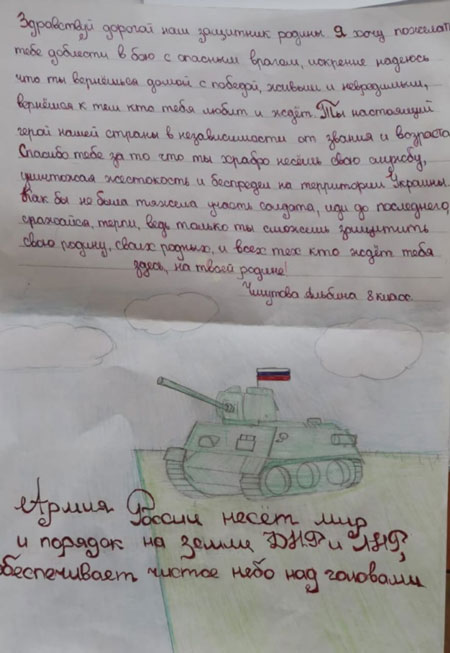 Здравствуй дорогой наш защитник родины. Я хочу пожелать
тебе доблести в бою с опасным врагом, искренне надеюсь
что ты вернёшься домой с победой, живым и невредимым,
вернёшся к тем кто тебя любит и ждёт. Ты настоящий
герой нашей страны в независимости от звания и возраста
Спасибо тебе за то что ты храбро несёшь свою службу,
уничтожая жестокость и беспредел на территории Украины.
Как бы не была тяжела участь солдата, иди до последнего,
сражайся, терпи, ведь только ты сможешь защитить
свою родину, своих родных, и всех тех кто ждёт тебя
здесь, на твоей родине!
Альбина 8 класс
Армия России несёт мир
и порядок на земли ДНР и ЛНР,
обеспечивает чистое небо над головами